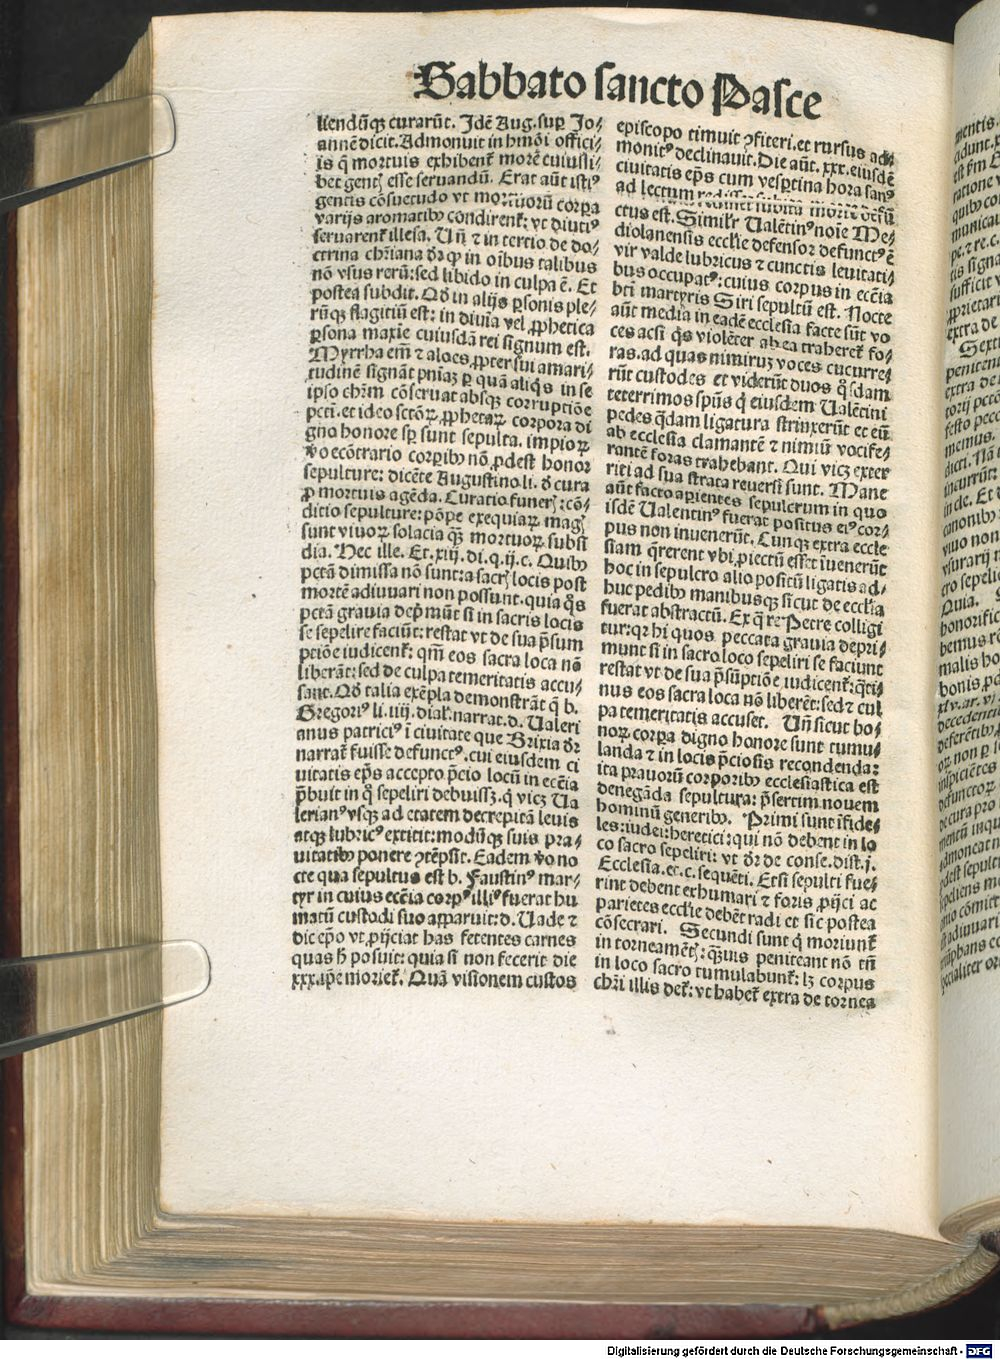 Sabbato sancto Pasce
liendūqꝫ curarūt. Idē Aug. suꝑ Jo⸗
annē dicit. Admonuit in hmōi offici⸗
is q̄ mortuis exhibent᷑ morē cuiusli⸗
bet gentꝭ esse seruandū. Erat aūt isti⁹
gentis cōsuetudo vt mortuorū corꝑa
varijs aromatibꝫ condirent᷑: vt diuti⁹
seruarent᷑ illesa. Uñ ⁊ in tertio de do⸗
ctrina chr̄iana dr̄ ꝙ in oībus talibus
nō vsus rerū: sed libido in culpa ē. Et
postea subdit. Qd̄ in alijs ꝑsonis ple⸗
rūqꝫ flagitiū est: in diuīa vel ꝓphetica
ꝑsona maxīe cuiusdā rei signum est.
Myrrha em̄ ⁊ aloes ꝓpter sui amari⸗
tudinē signāt pn̄iaꝫ ꝑ quā aliqͥs in se
ipso chr̄m cōseruat absqꝫ corruptiōe
pctī. et ideo sctōꝝ ꝓphetaꝝ corpora di
gno honore sꝑ sunt sepulta. impioꝝ
ꝟo ecōtrario corꝑibꝫ nō ꝓdest honor
sepulture: dicēte Augustino li. d̄ cura
ꝓ mortuis agēda. Curatio funerꝭ: cō⸗
ditio sepulture: pōpe exequiaꝝ magꝭ
sunt viuoꝝ solacia qꝫ̄ mortuoꝝ subsi
dia. Hec ille. Et. xiij. di. q. ij. c. Quibꝫ
pctā dimissa nō sunt: a sacrꝭ locis post
mortē adiuuari non possunt. quia qͦs
pctā grauia dep̄mūt si in sacris locis
se sepelire faciūt: restat vt de sua p̄sum
ptiōe iudicent᷑: qm̄ eos sacra loca nō
liberāt: sed de culpa temeritatis accu⸗
sant. Qd̄ talia exēpla demonstrāt q̄ b.
Gregori⁹ li. iiij. dial᷑. narrat. d. Ualeri
anus patrici⁹ ī ciuitate que Brixia dr̄
narrat᷑ fuisse defunct⁹. cui eiusdem ci
uitatis ep̄s accepto p̄cio locū in ecc̄ia
p̄buit in qͦ sepeliri debuissꝫ. q̄ vicꝫ Ua
lerian⁹ vsqꝫ ad etatem decrepitā leuis
atqꝫ lubric⁹ extitit: modūqꝫ suis pra⸗
uitatibꝫ ponere ꝯtēpsit. Eadem ꝟo no
cte qua sepultus est b. Faustin⁹ mar⸗
tyr in cuius ecc̄ia corp⁹ illi⁹ fuerat hu
matū custodi suo apparuit: d. Uade ⁊
dic ep̄o vt ꝓijciat has fetentes carnes
quas h̄ posuit: quia si non fecerit die
xxx. ip̄e moriet᷑. Quā visionem custos
episcopo timuit ꝯfiteri. et rursus ad⸗
monit⁹ declinauit. Die aūt. xxx. eiusdē
ciuitatis ep̄s cum vesꝑtina hora san⁹
ad lectum redisset subita morte defū
ctus est. Simil᷑r Ualētin⁹ noīe Me⸗
diolanensis eccl̄ie defensor defunct⁹ ē
vir valde lubricus ⁊ cunctis leuitati⸗
bus occupat⁹: cuius corpus in ecc̄ia
bt̄i martyris Siri sepultū est. Nocte
aūt media in eadē ecclesia facte sūt vo
ces acsi qͥs violēter ab ea traheret᷑ fo⸗
ras. ad quas nimiruꝫ voces cucurre⸗
rūt custodes et viderūt duos qͦsdam
teterrimos spūs q̄ eiusdem Ualētini
pedes qͣdam ligatura strinxerūt et eū
ab ecclesia clamantē ⁊ nimiū vocife⸗
rantē foras trahebant. Qui vicꝫ exter
riti ad sua strata reuersi sunt. Mane
aūt facto aꝑientes sepulcrum in quo
isdē Ualentin⁹ fuerat positus ei⁹ cor⸗
pus non inuenerūt. Cunqꝫ extra eccle
siam q̄rerent vbi ꝓiectū esset īuenerūt
hoc in sepulcro alio positū ligatis ad⸗
huc pedibꝫ manibusqꝫ sicut de eccl̄ia
fuerat abstractū. Ex qͣ re Petre colligi
tur: qꝛ hi quos peccata grauia depri⸗
munt si in sacro loco sepeliri se faciunt
restat vt de sua p̄sūptiōe iudicent᷑: qͣte⸗
nus eos sacra loca nō liberēt: sed ⁊ cul
pa temeritatis accuset. Uñ sicut bo⸗
noꝝ corꝑa digno honore sunt tumu⸗
landa ⁊ in locis p̄ciosis recondenda:
ita prauorū corporibꝫ ecclesiastica est
deneganda sepultura: p̄sertim nouem
hominū generibꝫ. Primi sunt īfide⸗
les: iudei: heretici: qui nō debent in lo
co sacro sepeliri: vt dr̄ de conse. dist. j.
Ecclesia. et. c. sequēti. Et si sepulti fue⸗
rint debent exhumari ⁊ foris ꝓijci ac
parietes eccl̄ie debēt radi et sic postea
cōsecrari. Secundi sunt q̄ moriunt᷑
in torneamētꝭ: qͣꝫuis peniteant nō tn̄
in loco sacro tumulabunt᷑: lꝫ corpus
chr̄i illis det᷑: vt habet᷑ extra de tornea
Digitalisierung gefördert durch die Deutsche Forschungsgemeinschaft - DFG